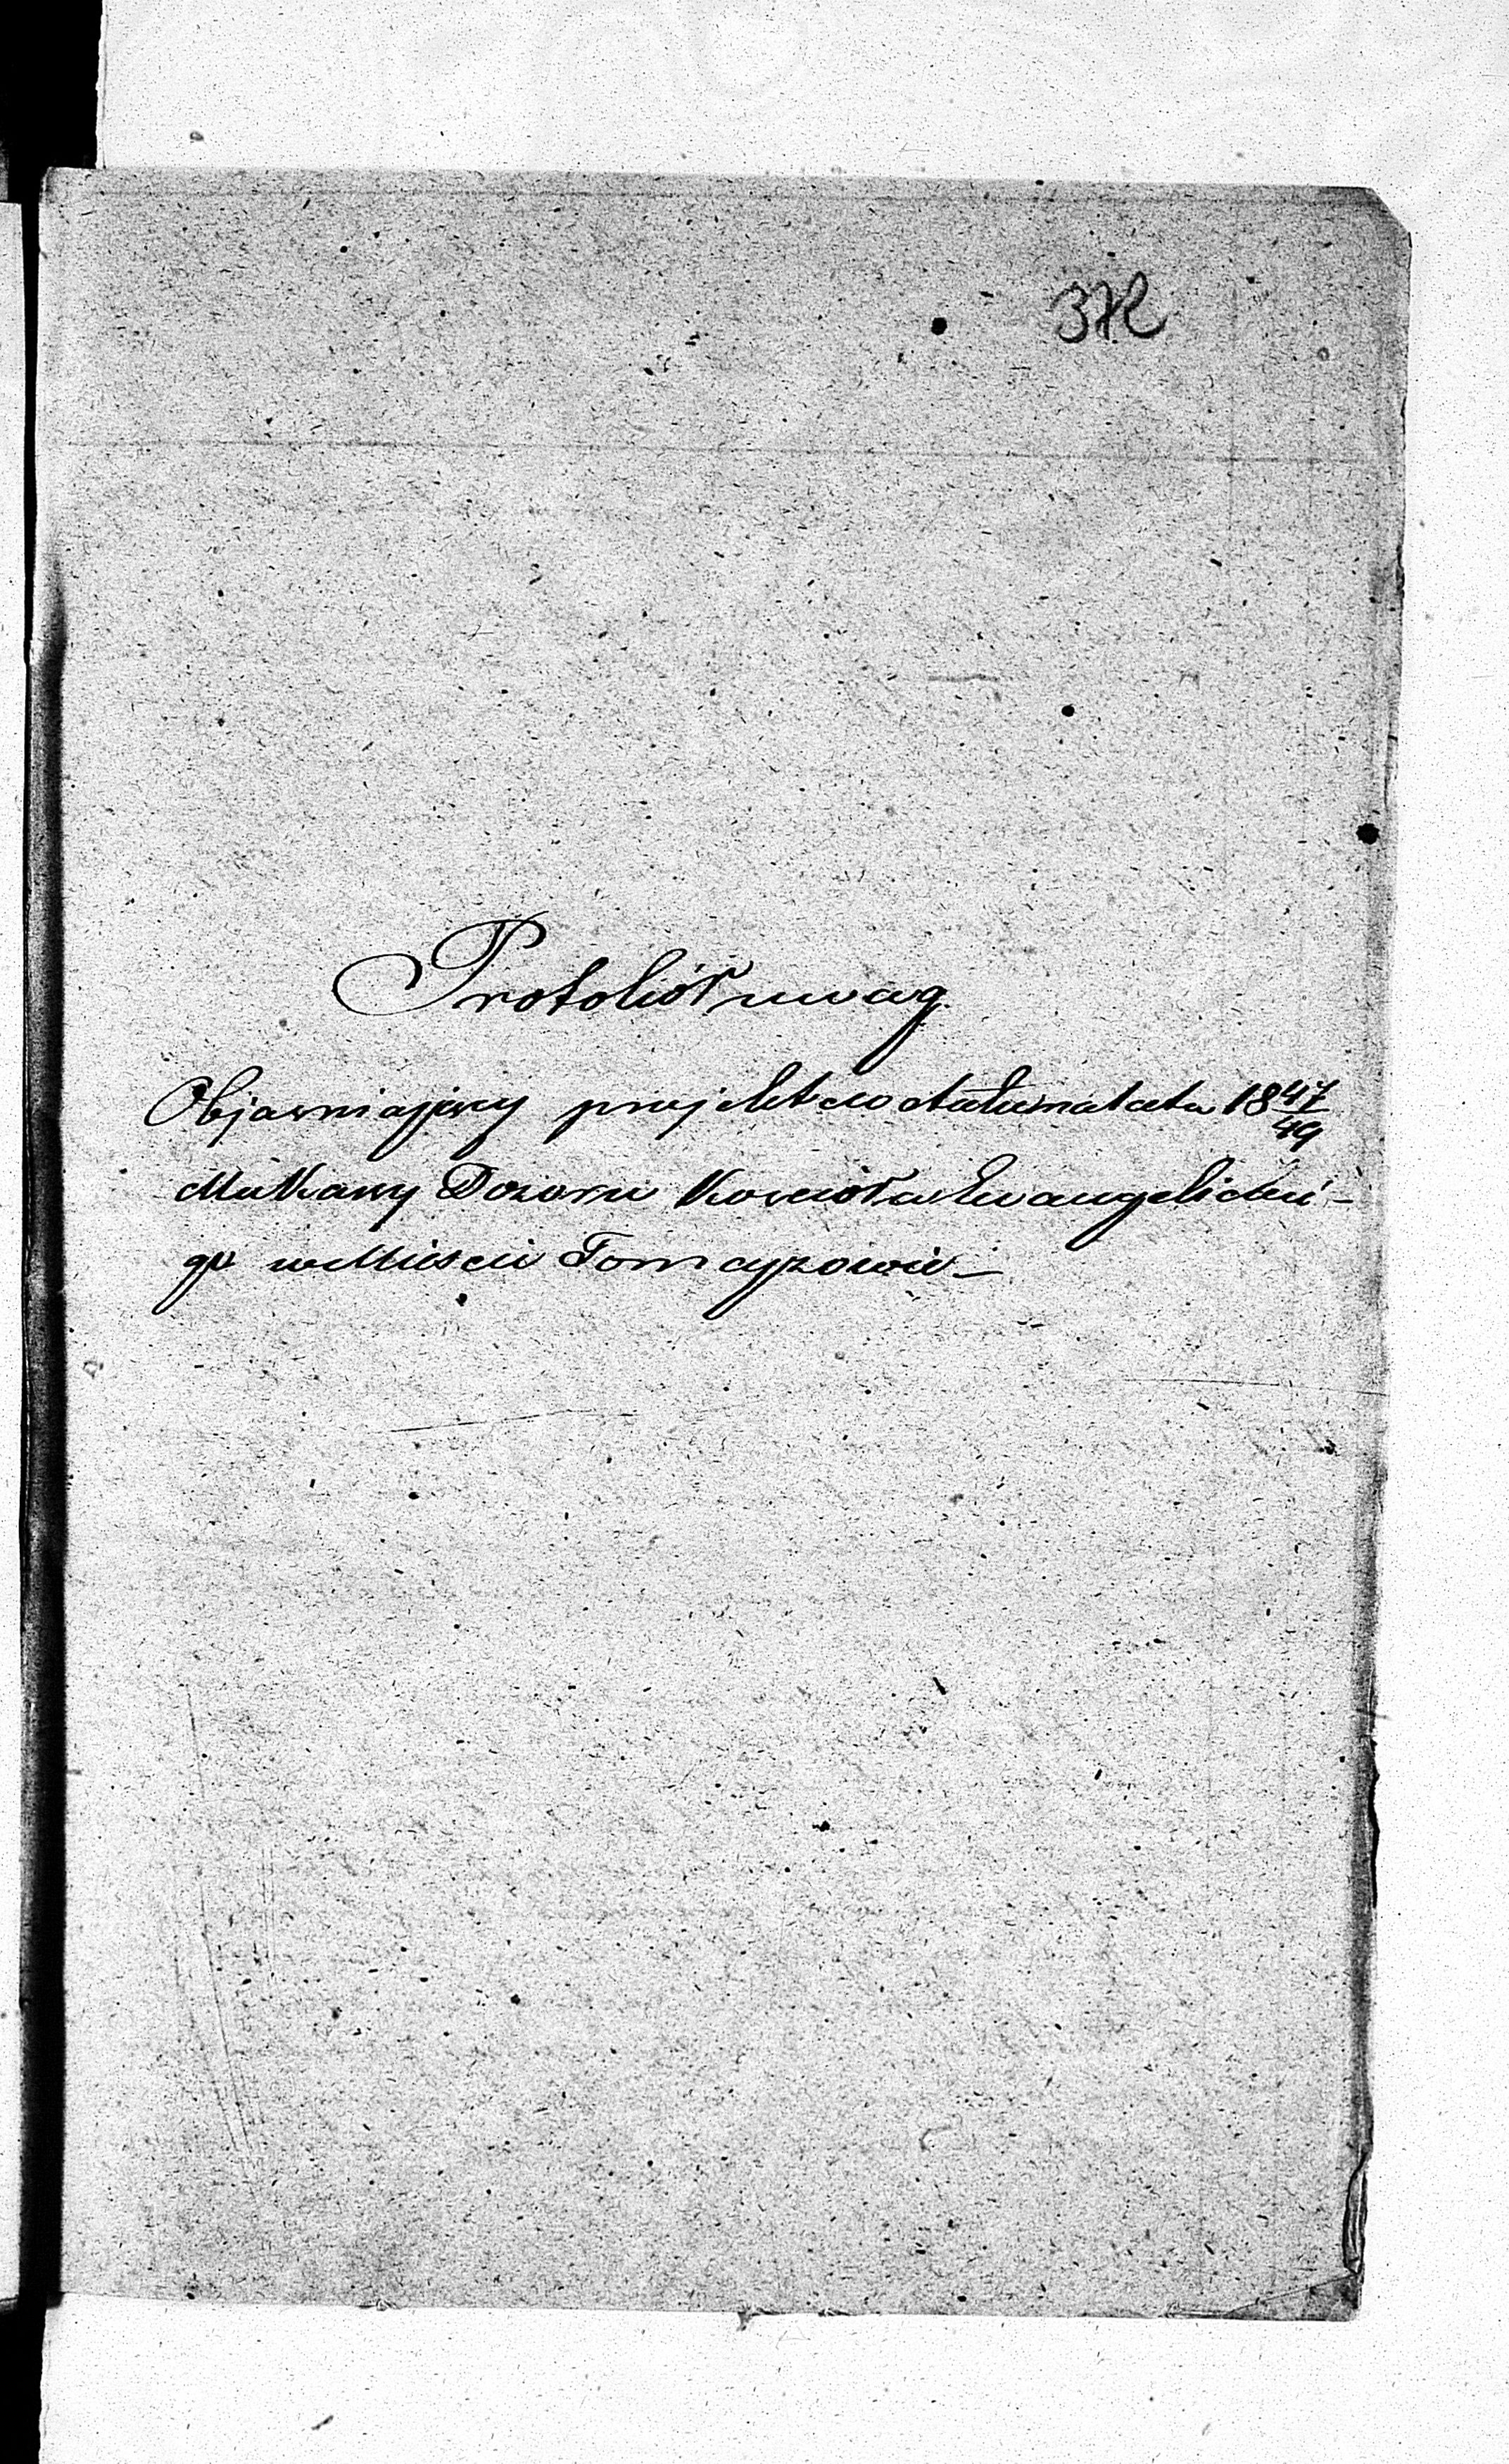 372
Protokół uwag
Objasniający projekt do etatu na lata 18 47/49
Kassy Dozoru Kościoła Ewangelickie-
go w Mieście Tomaszowie